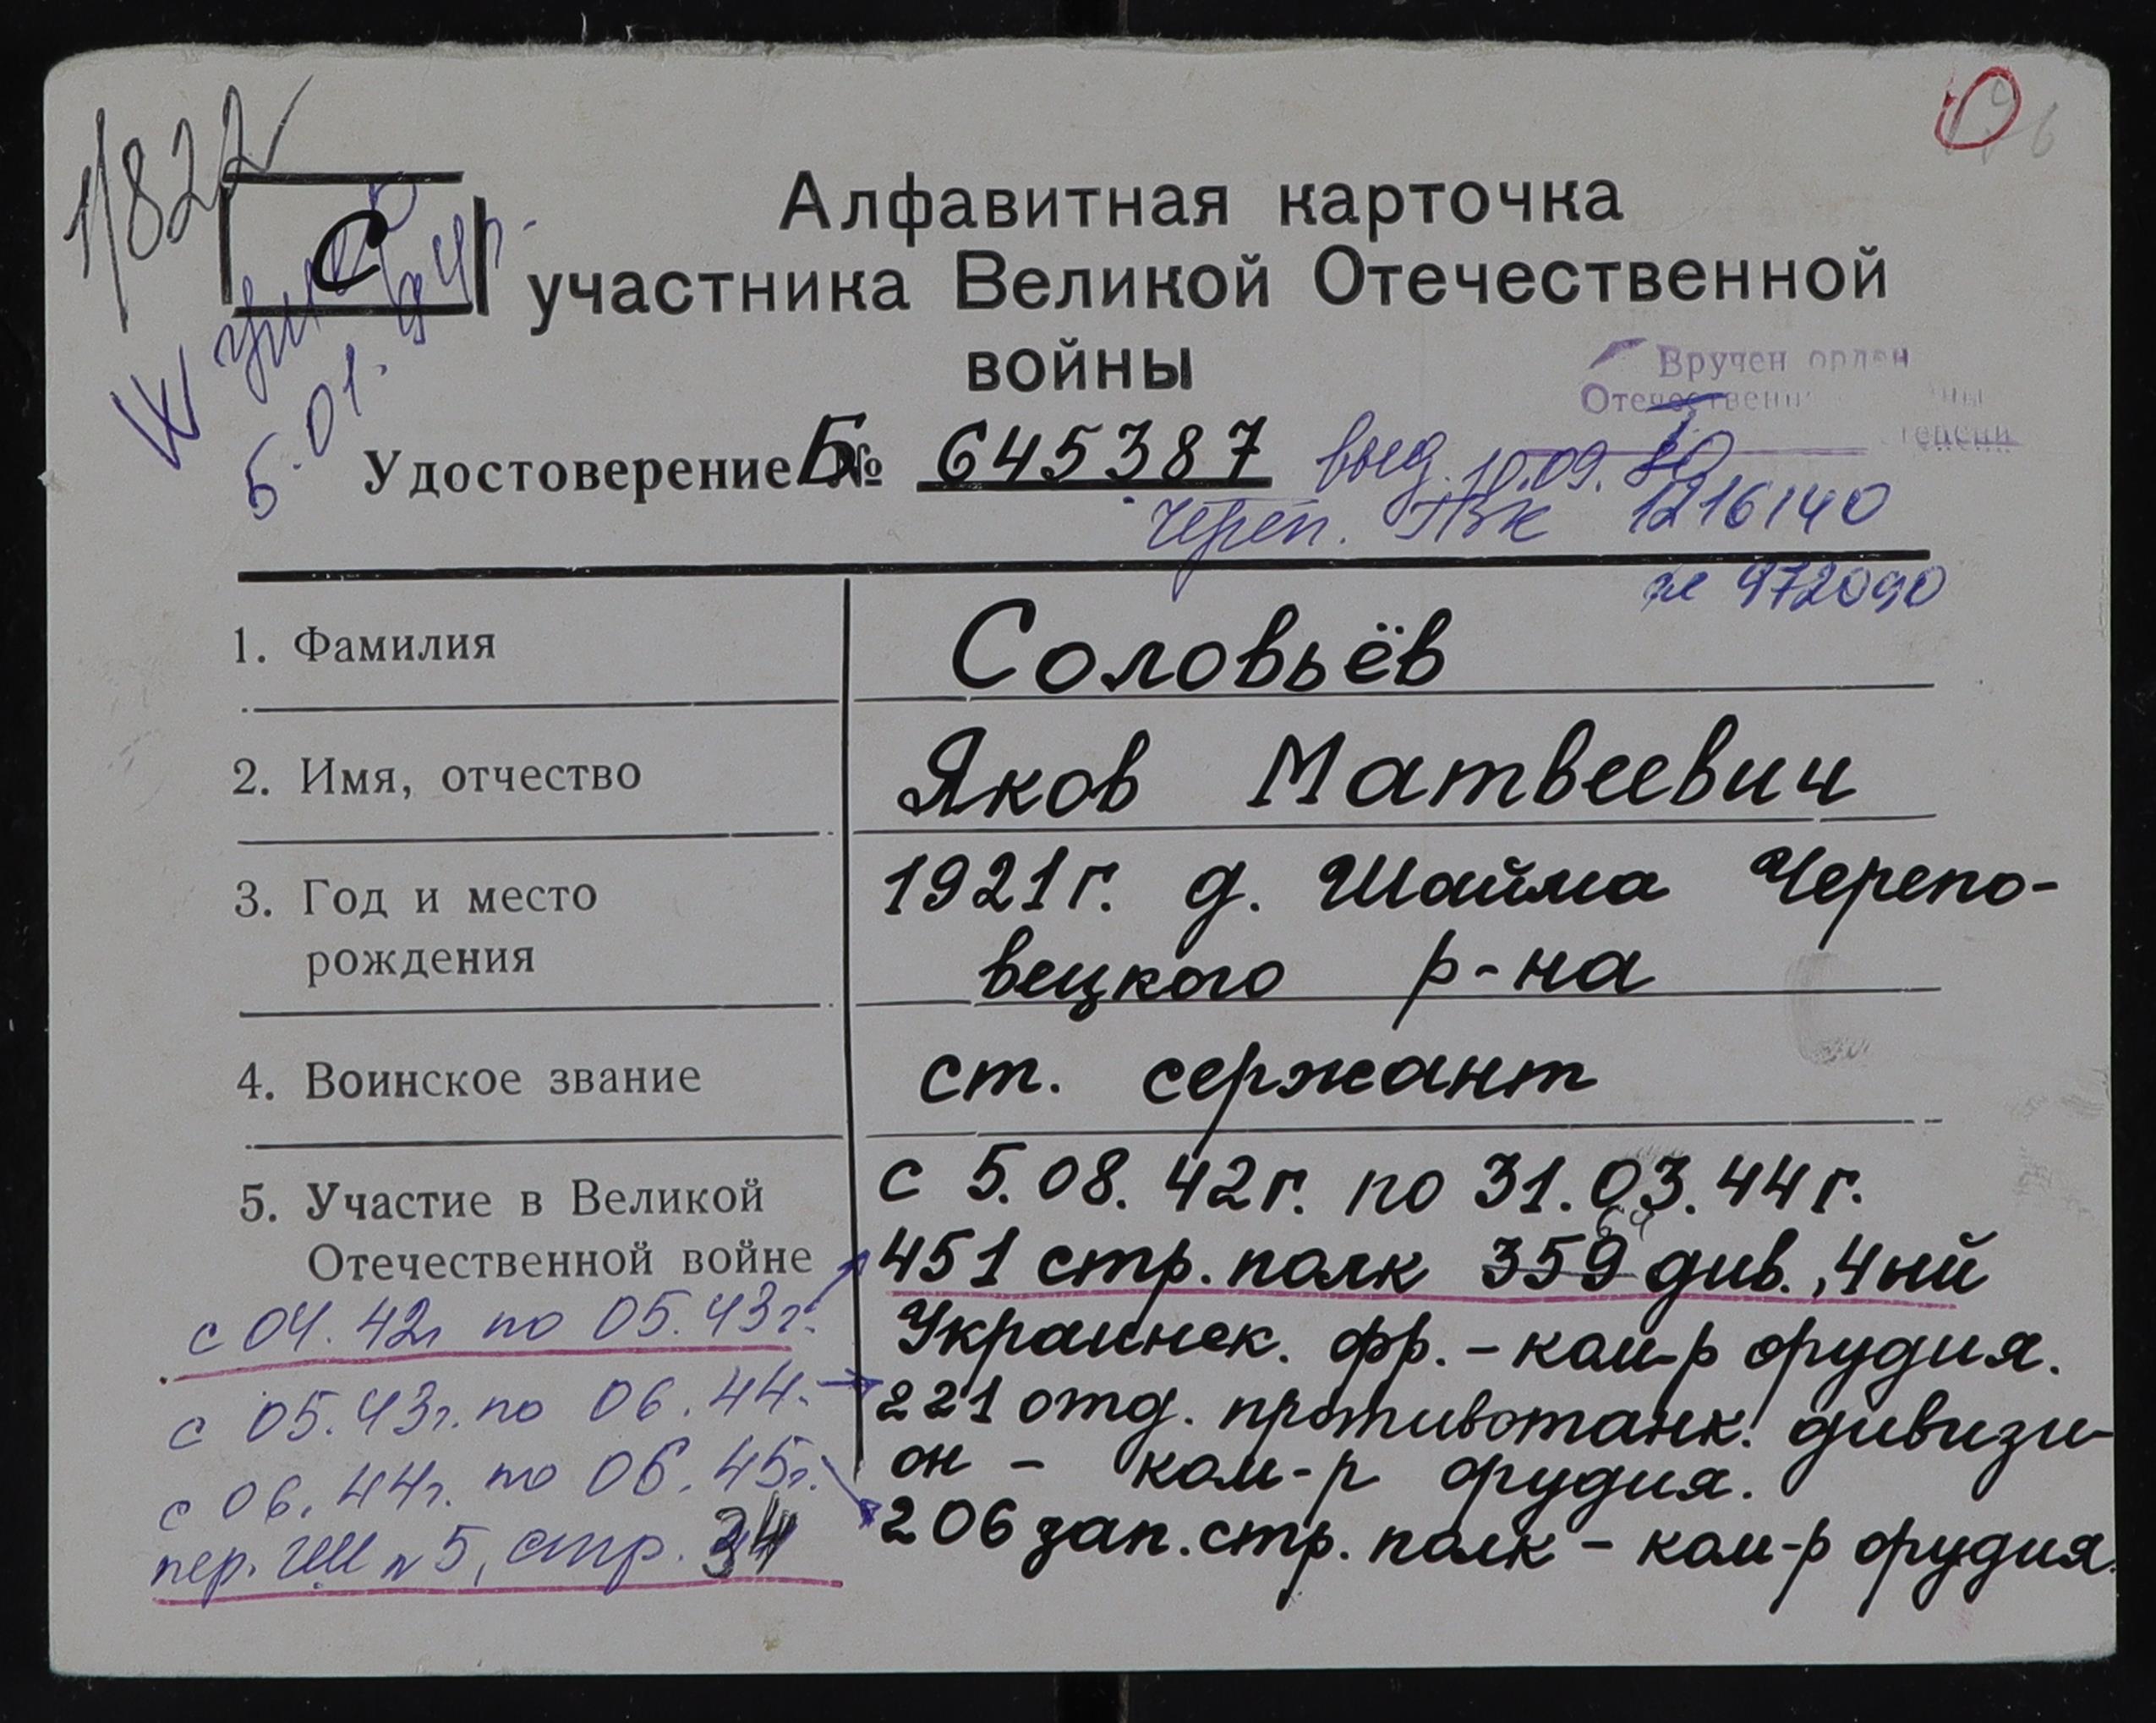 1/822
С
Алфавитная карточка
участника Великой Отечественной
войны
умер
5.01.94г.
Вручен орден
Отечественн
степени
Удостоверение Б№ 645387 выд. 10.09.80
Череп. ГВК 1216140
№ 972090
1. Фамилия
Соловьёв
2. Имя, отчество
Яков Матвеевич
3. Год и место
рождения
1921г. д. Шайма Черепо-
вецкого р-на
4. Воинское звание
ст. сержант
5. Участие в Великой
Отечественной войне
с 5.08.42г. по 31.03.44г.
451 стр. полк 359 див., 4ый
Украинск. фр. - ком-р орудия.
221 отд. противотанк. дивизи-
он - ком-р орудия.
206 зап. стр. полк - ком-р орудия.
с 04.42г по 05.43г.
с 05.43г. по 06.44.
с 06.44г. по 06.45г.
пер. ГШ №5, стр. 34